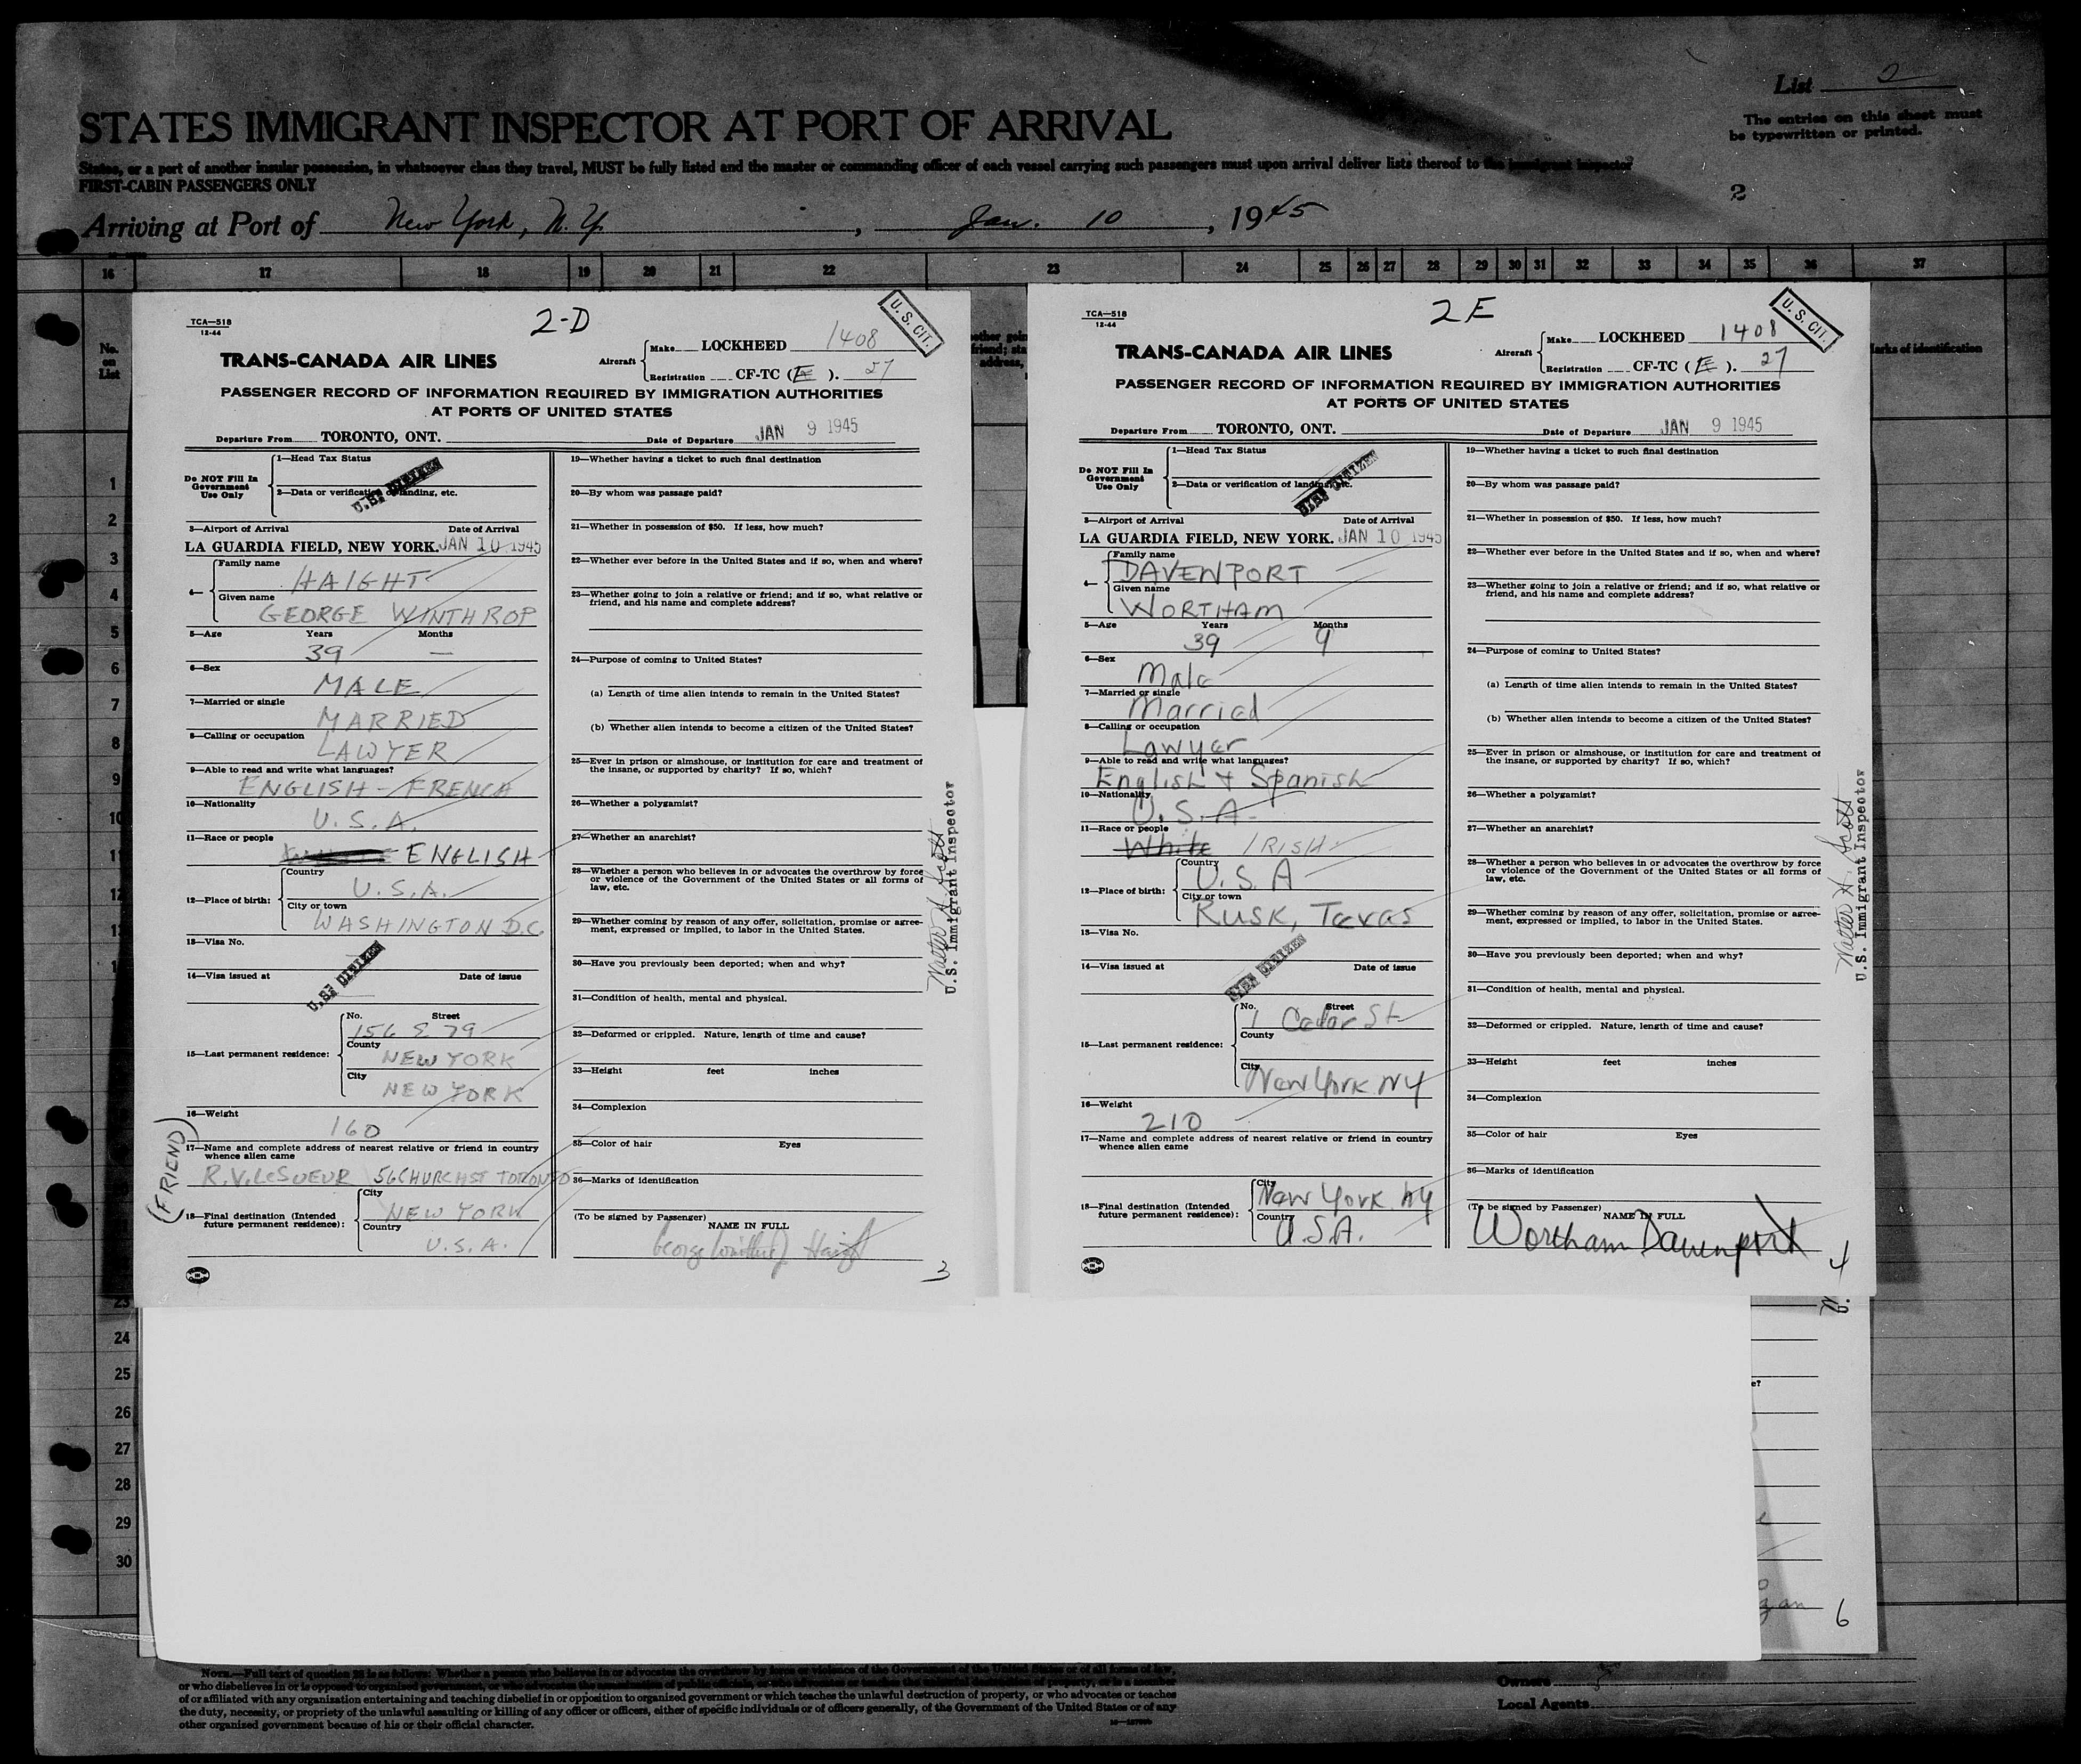 List 2
The entries on this sheet must
be typewritten or printed.
STATES IMMIGRANT INSPECTOR AT PORT OF ARRIVAL
States, or a part of another insular possession, in whatsoever class they travel, MUST be fully listed and the master or commanding officer of each vessel carrying such passengers must upon arrival deliver lists thereof to the immigrant inspector
FIRST-CABIN PASSENGERS ONLY
2
Arriving at Port of New York, N.Y. , Jan. 10 , 1945
16 17 18 19 20 21 22 23 24 25 26 27 28 29 30 31 32 33 34 35 36 37
No.
on
List
1
2
3
4
5
6
7
8
9
10
11
12
TCA—518
12-44
2-D
U. S. CIT.
TRANS-CANADA AIR LINES
Aircraft
Make LOCKHEED 1408
Registration CF-TC (E). 27
PASSENGER RECORD OF INFORMATION REQUIRED BY IMMIGRATION AUTHORITIES
AT PORTS OF UNITED STATES
Departure From TORONTO, ONT. Date of Departure JAN 9 1945
Do NOT Fill In
Government
Use Only
1—Head Tax Status
2—Data or verification of landing, etc.
U.S. CITIZEN
3—Airport of Arrival Date of Arrival
LA GUARDIA FIELD, NEW YORK. JAN 10 1945
4—
Family name
HAIGHT
Given name
GEORGE WINTHROP
5—Age Years Months
39 —
6—Sex
MALE
7—Married or single
MARRIED
8—Calling or occupation
LAWYER
9—Able to read and write what languages?
ENGLISH - FRENCH
10—Nationality
U.S.A.
11—Race or people
ENGLISH
12—Place of birth:
Country
U.S.A.
City or town
WASHINGTON D.C.
13—Visa No.
14—Visa issued at Date of issue
U.S. CITIZEN
15—Last permanent residence:
No. Street
156 E 79
County
NEW YORK
City
NEW YORK
16—Weight
160
17—Name and complete address of nearest relative or friend in country
whence alien came
(FRIEND)
R.V. LeSUEUR 56 CHURCH ST TORONTO
18—Final destination (Intended
future permanent residence):
City
NEW YORK
Country
U.S.A.
19—Whether having a ticket to such final destination
20—By whom was passage paid?
21—Whether in possession of $50. If less, how much?
22—Whether ever before in the United States and if so, when and where?
23—Whether going to join a relative or friend; and if so, what relative or
friend, and his name and complete address?
24—Purpose of coming to United States?
(a) Length of time alien intends to remain in the United States?
(b) Whether alien intends to become a citizen of the United States?
25—Ever in prison or almshouse, or institution for care and treatment of
the insane, or supported by charity? If so, which?
26—Whether a polygamist?
27—Whether an anarchist?
28—Whether a person who believes in or advocates the overthrow by force
or violence of the Government of the United States or all forms of
law, etc.
29—Whether coming by reason of any offer, solicitation, promise or agree-
ment, expressed or implied, to labor in the United States.
30—Have you previously been deported; when and why?
31—Condition of health, mental and physical.
32—Deformed or crippled. Nature, length of time and cause?
33—Height feet inches
34—Complexion
35—Color of hair Eyes
36—Marks of identification
(To be signed by Passenger)
NAME IN FULL
George Winthrop Haight
3
Walter A. Scott
U.S. Immigrant Inspector
TCA—518
12-44
2E
U. S. CIT.
TRANS-CANADA AIR LINES
Aircraft
Make LOCKHEED 1408
Registration CF-TC (E). 27
PASSENGER RECORD OF INFORMATION REQUIRED BY IMMIGRATION AUTHORITIES
AT PORTS OF UNITED STATES
Departure From TORONTO, ONT. Date of Departure JAN 9 1945
Do NOT Fill In
Government
Use Only
1—Head Tax Status
2—Data or verification of landing, etc.
U.S. CITIZEN
3—Airport of Arrival Date of Arrival
LA GUARDIA FIELD, NEW YORK. JAN 10 1945
4—
Family name
DAVENPORT
Given name
WORTHAM
5—Age Years Months
39 9
6—Sex
Male
7—Married or single
Married
8—Calling or occupation
Lawyer
9—Able to read and write what languages?
English + Spanish
10—Nationality
U.S.A.
11—Race or people
White IRISH
12—Place of birth:
Country
U.S.A
City or town
Rusk, Texas
13—Visa No.
14—Visa issued at Date of issue
U.S. CITIZEN
15—Last permanent residence:
No. Street
1 Cedar St
County
City
New York NY
16—Weight
210
17—Name and complete address of nearest relative or friend in country
whence alien came
18—Final destination (Intended
future permanent residence):
City
New York NY
Country
U.S.A.
19—Whether having a ticket to such final destination
20—By whom was passage paid?
21—Whether in possession of $50. If less, how much?
22—Whether ever before in the United States and if so, when and where?
23—Whether going to join a relative or friend; and if so, what relative or
friend, and his name and complete address?
24—Purpose of coming to United States?
(a) Length of time alien intends to remain in the United States?
(b) Whether alien intends to become a citizen of the United States?
25—Ever in prison or almshouse, or institution for care and treatment of
the insane, or supported by charity? If so, which?
26—Whether a polygamist?
27—Whether an anarchist?
28—Whether a person who believes in or advocates the overthrow by force
or violence of the Government of the United States or all forms of
law, etc.
29—Whether coming by reason of any offer, solicitation, promise or agree-
ment, expressed or implied, to labor in the United States.
30—Have you previously been deported; when and why?
31—Condition of health, mental and physical.
32—Deformed or crippled. Nature, length of time and cause?
33—Height feet inches
34—Complexion
35—Color of hair Eyes
36—Marks of identification
(To be signed by Passenger)
NAME IN FULL
Wortham Davenport
4
Walter A. Scott
U.S. Immigrant Inspector
marks of identification
23
24
25
26
27
28
29
30
6
NOTE.—Full text of question 28 is as follows: Whether a person who believes in or advocates the overthrow by force or violence of the Government of the United States or of all forms of law,
or who disbelieves in or is opposed to organized government, or who advocates the assassination of public officials, or who advocates or teaches the unlawful destruction of property, or is a member
of or affiliated with any organization entertaining and teaching disbelief in or opposition to organized government or which teaches the unlawful destruction of property, or who advocates or teaches
the duty, necessity, or propriety of the unlawful assaulting or killing of any officer or officers, either of specific individuals or of officers generally, of the Government of the United States or of any
other organized government because of his or their official character.
Owners
Local Agents